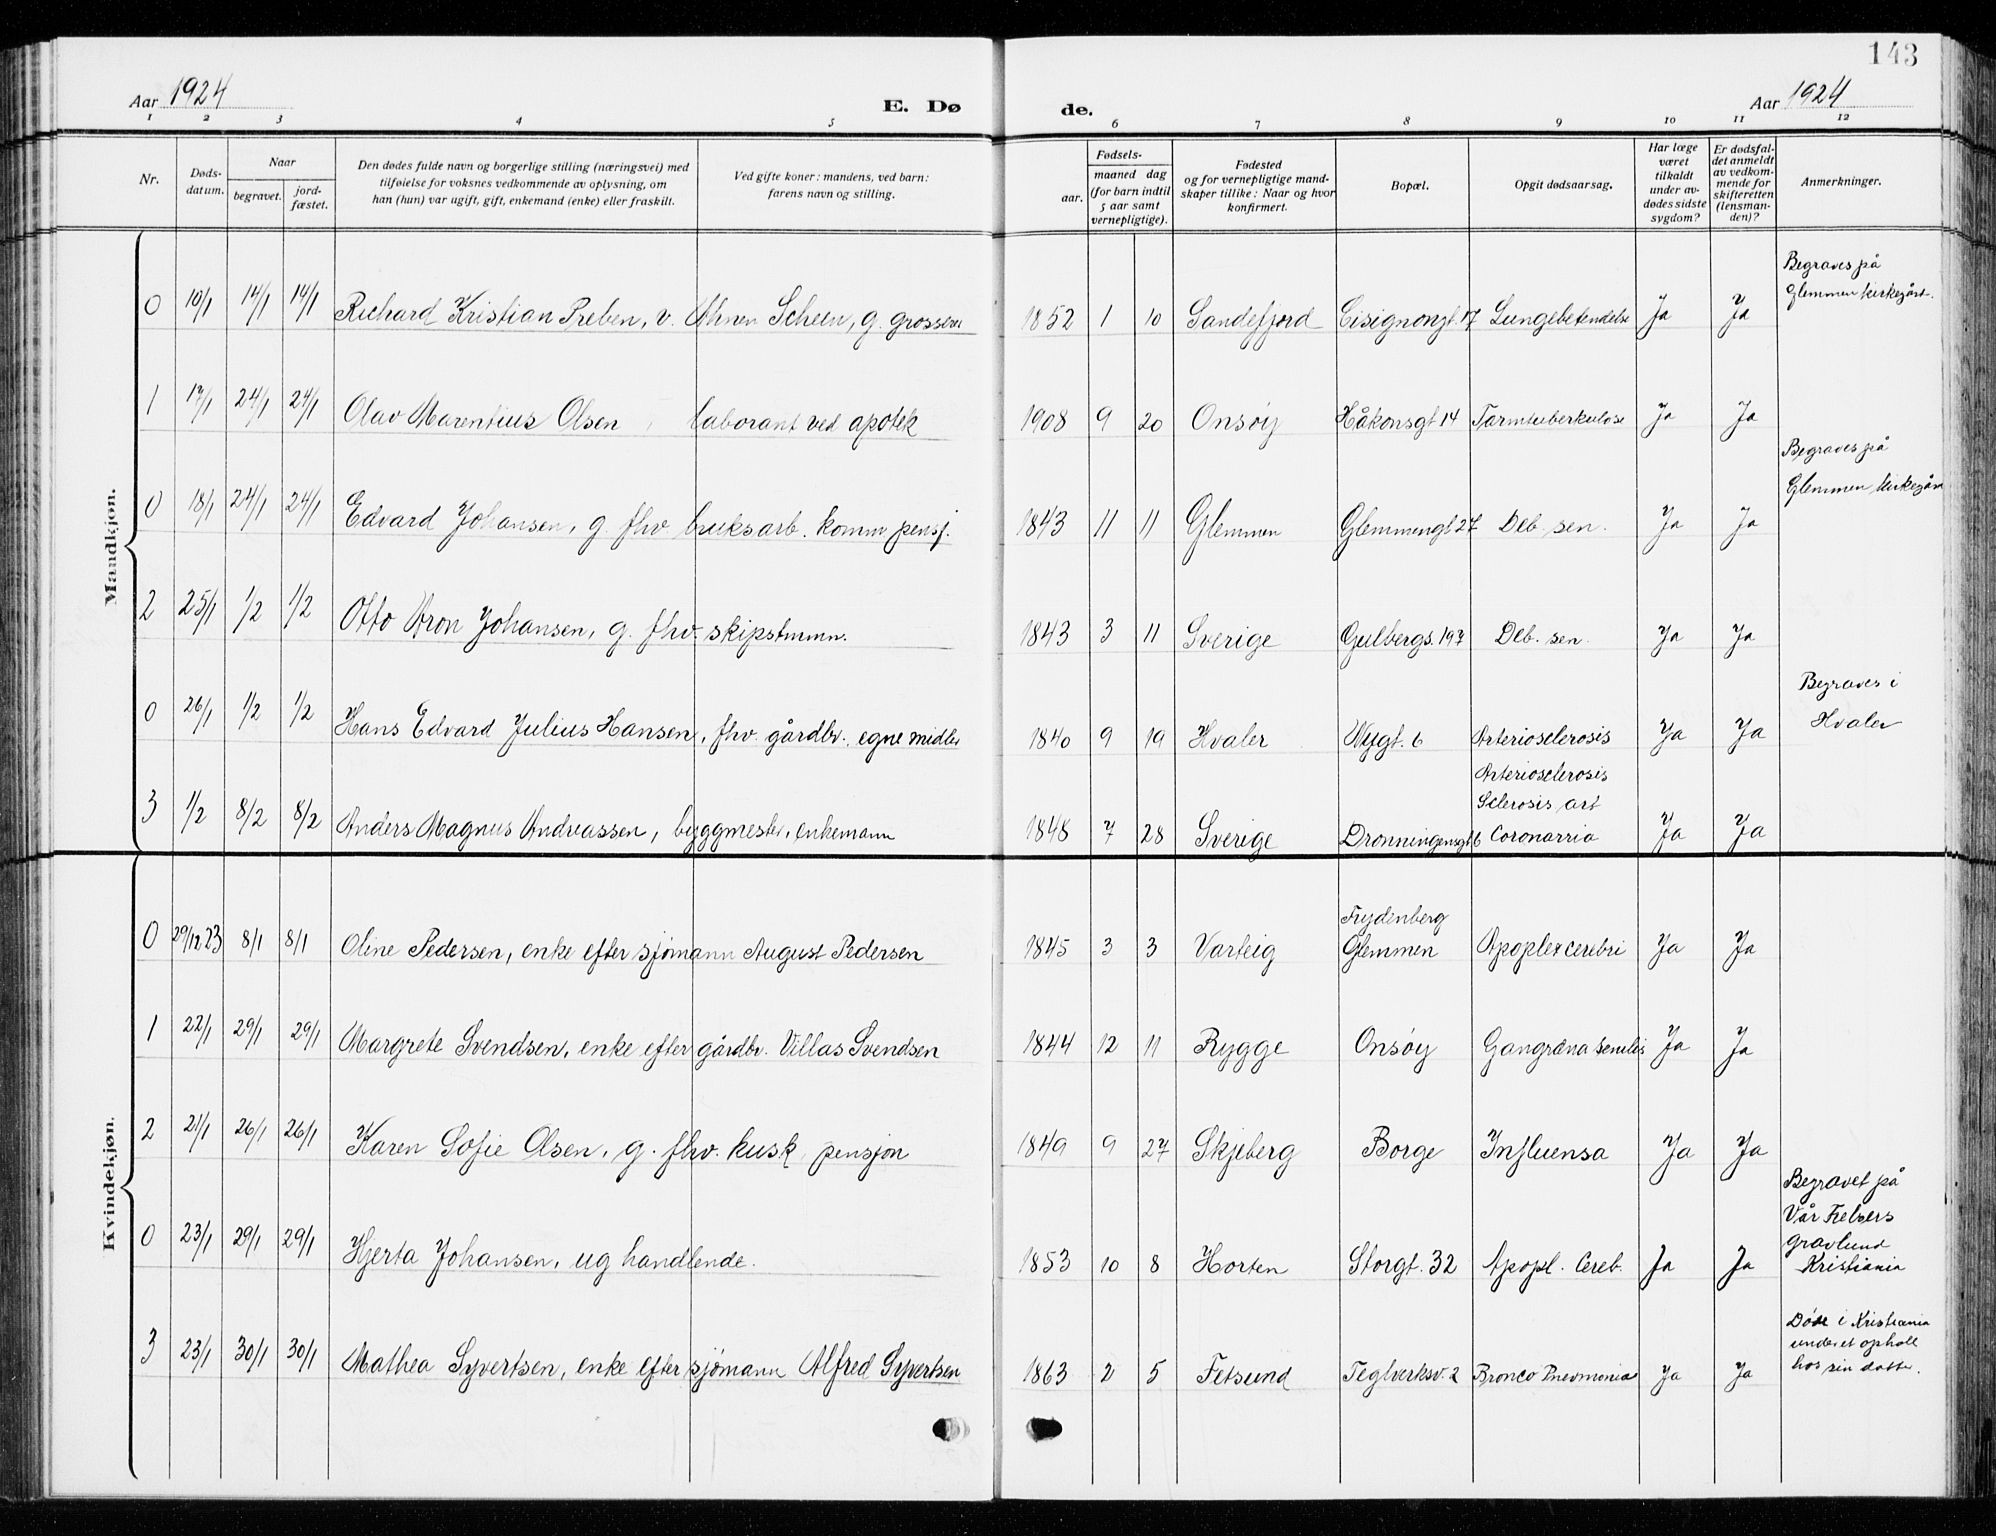 143
Aar 1924 E. Dø de. Aar 1924
1 2 3 4 5 6 7 8 9 10 11 12
Nr.
Døds-
datum.
Naar
begravet.
jord-
fæstet.
Den dødes fulde navn og borgerlige stilling (næringsvei) med
tilføielse for voksnes vedkommende av oplysning, om
han (hun) var ugift, gift, enkemand (enke) eller fraskilt.
Ved gifte koner: mandens, ved barn:
farens navn og stilling.
Fødsels-
aar.
maaned dag
(for barn indtil
5 aar samt
vernepligtige).
Fødested
og for vernepligtige mand-
skaper tillike: Naar og hvor
konfirmert.
Bopæl.
Opgit dødsaarsag.
Har læge
været
tilkaldt
under av-
dødes sidste
sygdom?
Er dødsfal-
det anmeldt
av vedkom-
mende for
skifteretten
(lensman-
den)?
Anmerkninger.
Mandkjøn.
Begraves på
Glemmen kirkegård.
0 10/1 14/1 14/1 Richard Kristian Preben, v. Ahnen Scheen, g. grosserer 1852 1 10 Sandefjord Cisignongt. 17 Lungebetendelse Ja Ja
1 17/1 24/1 24/1 Olav Marentius Olsen, laborant ved apotek 1908 9 20 Onsøy Håkonsgt 14 Tarmtuberkulose Ja Ja
Begraves på
Glemmen kirkegård
0 18/1 24/1 24/1 Edvard Johansen, g. fhv. bruksarb. komm pensj. 1843 11 11 Glemmen Glemmengt 27 Deb. sen. Ja Ja
2 25/1 1/2 1/2 Otto Aron Johansen, g. fhv. skipstmmn. 1843 3 11 Sverige Gulbergs. 197 Deb. sen. Ja Ja
Begraves i
Hvaler
0 26/1 1/2 1/2 Hans Edvard Julius Hansen, fhv. gårdbr., egne midler 1840 9 19 Hvaler Nygt. 6 Arteriosclerosis Ja Ja
Arteriosclerosis
Sclerosis art
3 1/2 8/2 8/2 Anders Magnus Andreassen, byggmester, enkemann 1848 7 28 Sverige Dronningensgt 6 Coronarria Ja Ja
Kvindekjøn.
Frydenberg
0 29/12 23 8/1 8/1 Oline Pedersen, enke efter sjømann August Pedersen 1845 3 3 Varteig Glemmen Apoplex cerebri Ja Ja
1 22/1 29/1 29/1 Margrete Svendsen, enke efter gårdbr. Villas Svendsen 1844 12 11 Rygge Onsøy Gangræna senilis Ja Ja
2 21/1 26/1 26/1 Karen Sofie Olsen, g. fhv. kusk, pensjon 1849 9 27 Skjeberg Borge Influensa Ja Ja
Begravet på
Vår Frelsers
gravlund
Kristiania
0 23/1 29/1 29/1 Hjerta Johansen, ug handlende. 1853 10 8 Horten Storgt. 32 Apopl. Cereb. Ja Ja
Døde i Kristiania
under et ophold
hos sin datter.
3 23/1 30/1 30/1 Mathea Syvertsen, enke efter sjømann Alfred Syvertsen 1863 2 5 Fetsund Teglverksv. 2 Bronco Pnevmonia Ja Ja